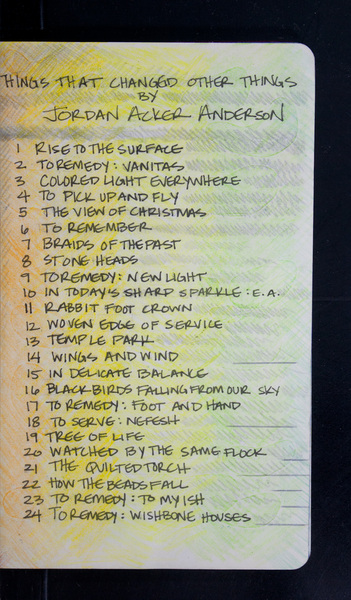 THINGS THAT CHANGED OTHER THINGS
BY
JORDAN ACKER ANDERSON
1 RISE TO THE SURFACE
2 TO REMEDY: VANITAS
3 COLORED LIGHT EVERYWHERE
4 TO PICK UP AND FLY
5 THE VIEW OF CHRISTMAS
6 TO REMEMBER
7 BRAIDS OF THE PAST
8 STONE HEADS
9 TO REMEDY: NEW LIGHT
10 IN TODAY'S SHARP SPARKLE: E.A.
11 RABBIT FOOT CROWN
12 WOVEN EDGE OF SERVICE
13 TEMPLE PARK
14 WINGS AND WIND
15 IN DELICATE BALANCE
16 BLACKBIRDS FALLING FROM OUR SKY
17 TO REMEDY: FOOT AND HAND
18 TO SERVE: NEFESH
19 TREE OF LIFE
20 WATCHED BY THE SAME FLOCK
21 THE QUILTED TORCH
22 HOW THE BEADS FALL
23 TO REMEDY: TO MY ISH
24 TO REMEDY: WISHBONE HOUSES